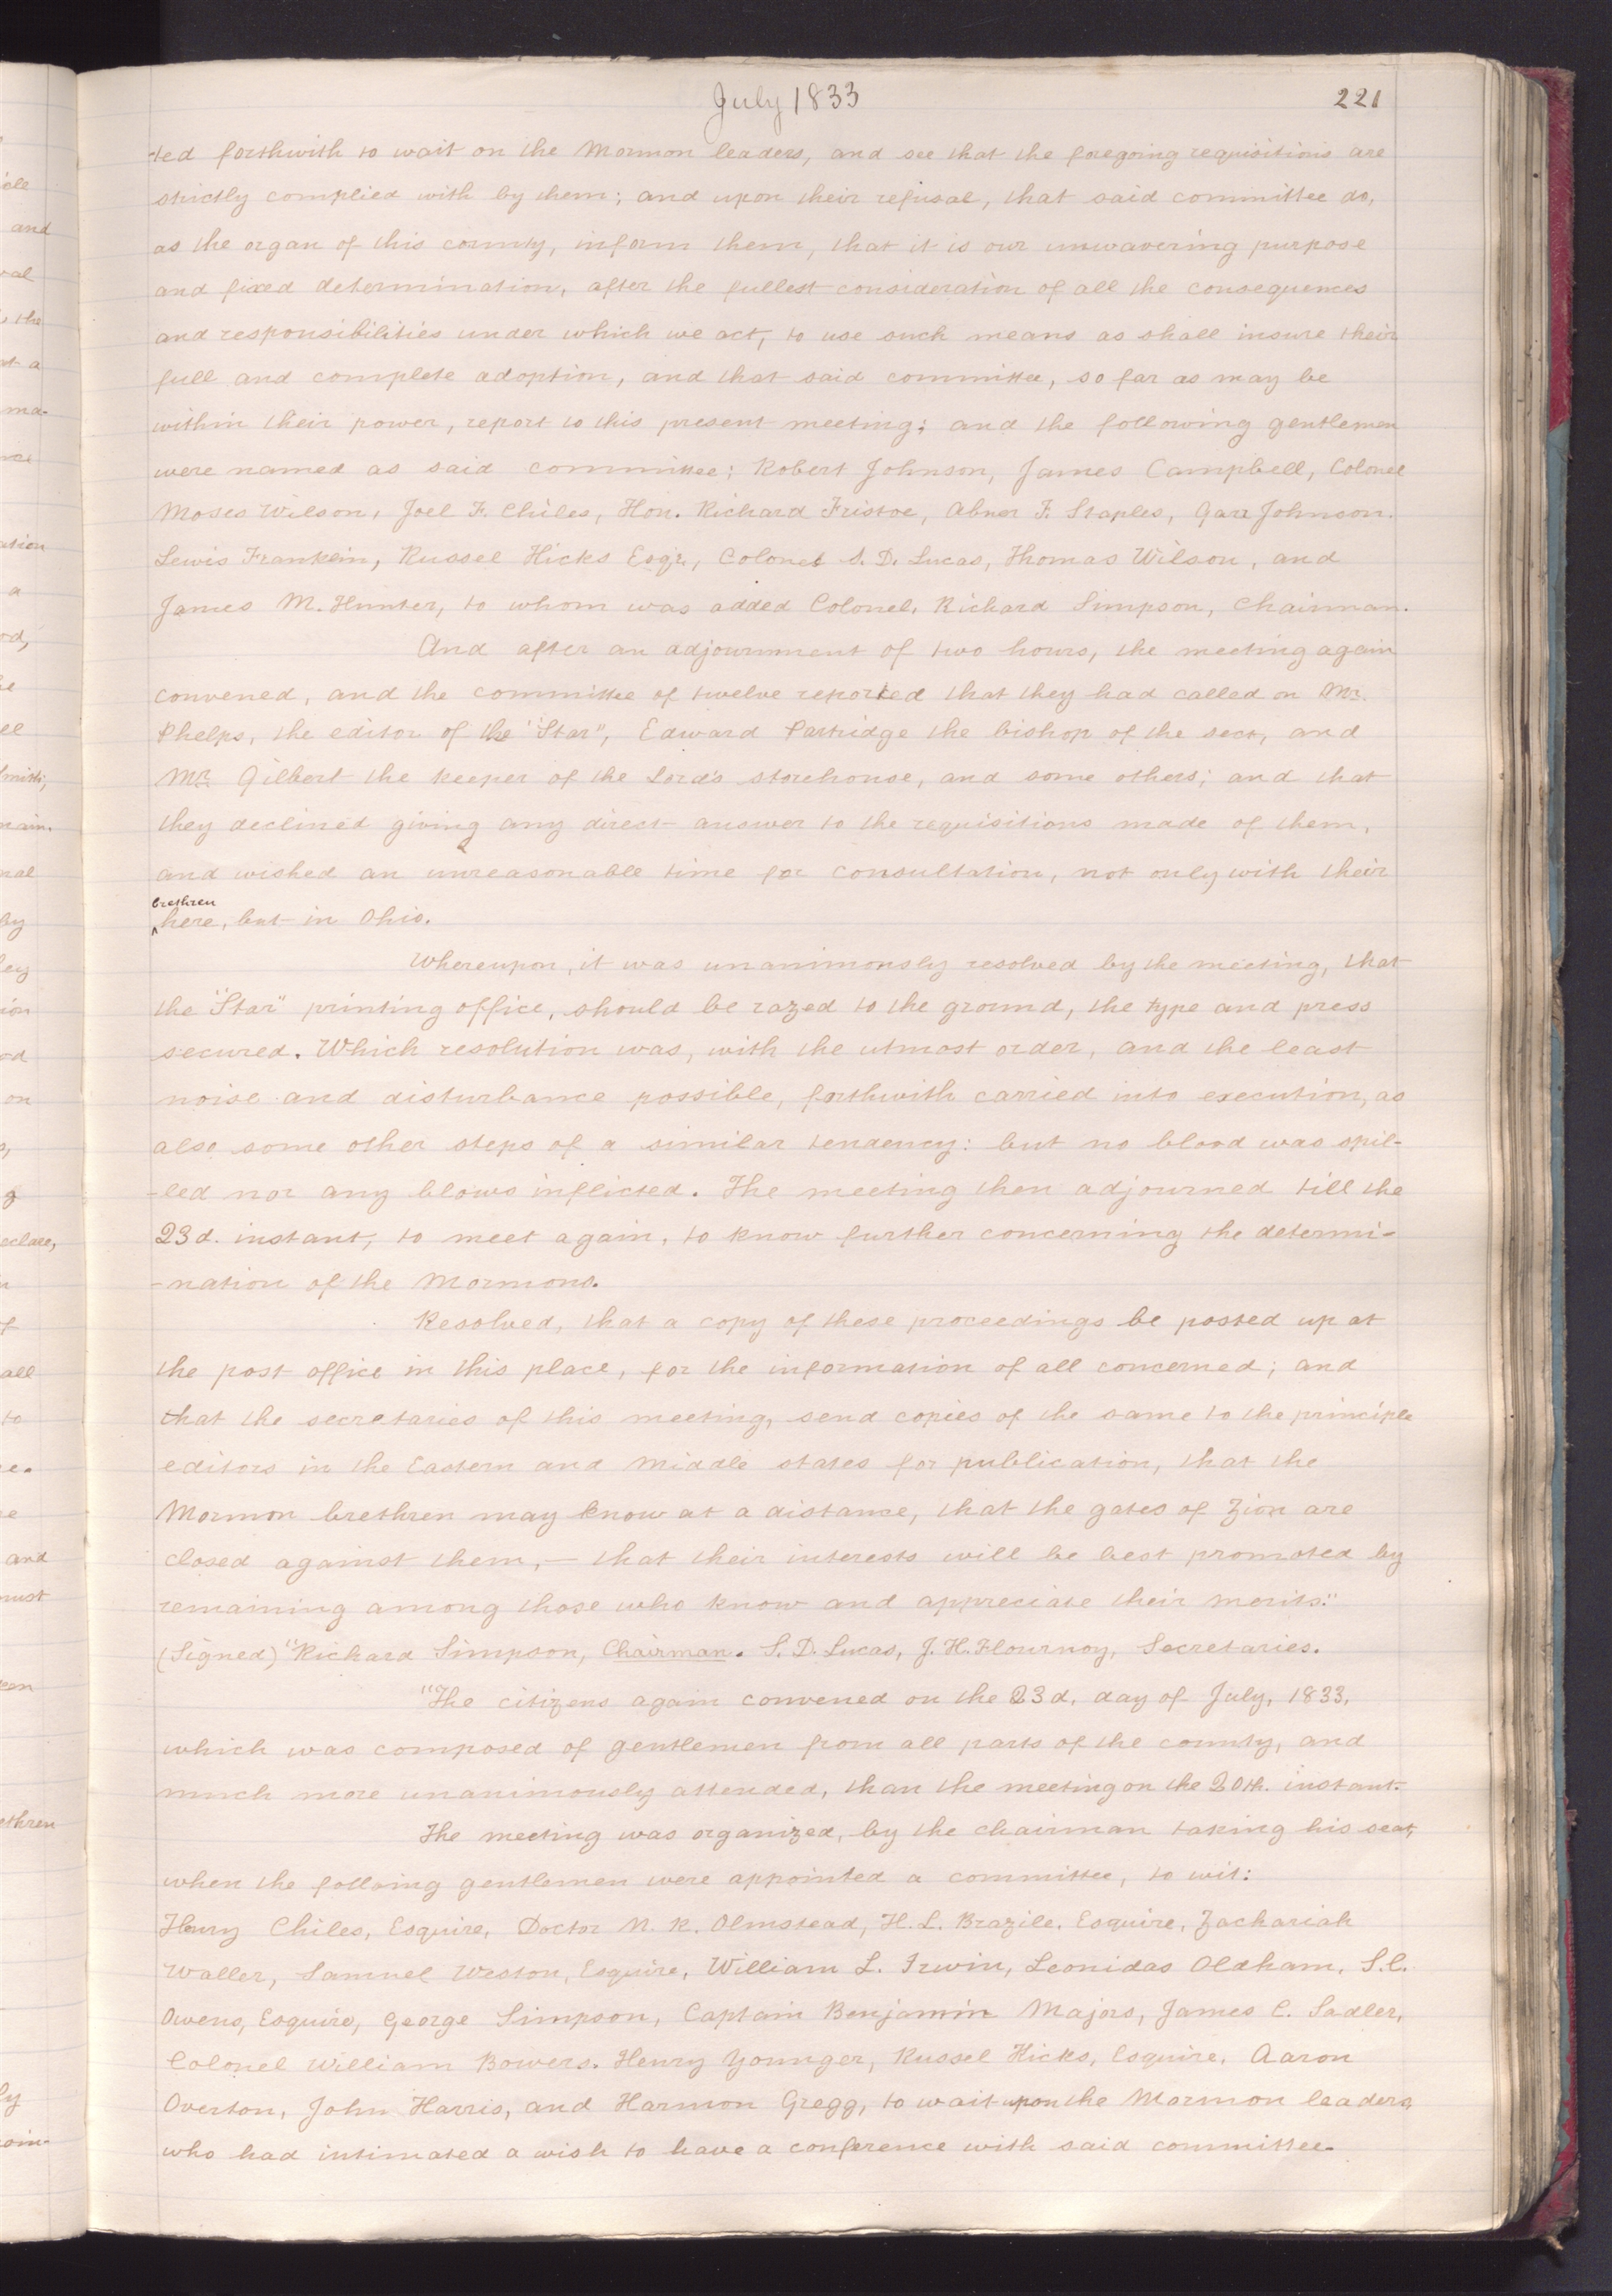 July 1833
221
-ted forthwith to wait on the Mormon leaders, and see that the foregoing requisitions are
strictly complied with by them; and upon their refusal, that said committee do,
as the organ of this county, inform them, that it is our unwavering purpose
and fixed determination, after the fullest consideration of all the consequences
and responsibilities under which we act, to use such means as shall insure their
full and complete adoption, and that said committee, so far as may be
within their power, report to this present meeting; and the following gentlemen
were named as said committee; Robert Johnson, James Campbell, Colonel
Moses Wilson, Joel F. Chiles, Hon. Richard Fristoe, Abner F. Staples, Gan Johnson.
Lewis Franklin, Russel Hicks Esqr., Colonel S. D. Lucas, Thomas Wilson, and
James M. Hunter, to whom was added Colonel, Richard Simpson, Chairman.
And after an adjournment of two hours, the meeting again
convened, and the committee of twelve reported that they had called on Mr.
Phelps, the editor of the "Star", Edward Partridge the bishop of the sect, and
Mr. Gilbert the keeper of the Lord's storehouse, and some others; and that
they declined giving any direct answer to the requisitions made of them,
and wished an unreasonable time for consultation, not only with their
brethren
^here, but in Ohio.
Whereupon, it was unanimously resolved by the meeting, that
the "Star" printing office, should be razed to the ground, the type and press
secured. Which resolution was, with the utmost order, and the least
noise and disturbance possible, forthwith carried into execution, as
also some other steps of a similar tendency: but no blood was spil-
-led nor any blows inflicted. The meeting then adjourned till the
23d. instant, to meet again, to know further concerning the determi-
-nation of the Mormons.
Resolved, that a copy of these proceedings be posted up at
the post office in this place, for the information of all concerned; and
that the secretaries of this meeting, send copies of the same to the principle
editors in the Eastern and Middle states for publication, that the
Mormon brethren may know at a distance, that the gates of Zion are
closed against them,— that their interests will be best promoted by
remaining among those who know and appreciate their merits."
(Signed) "Richard Simpson, Chairman. S. D. Lucas, J. H. Flournoy, Secretaries.
"The citizens again convened on the 23d. day of July, 1833,
which was composed of gentlemen from all parts of the county, and
much more unanimously attended, than the meeting on the 20th. instant.
The meeting was organized, by the chairman taking his seat,
when the folloing gentlemen were appointed a committee, to wit:
Henry Chiles, Esquire, Doctor N. K. Olmstead, H. L. Brazile, Esquire, Zachariah
Waller, Samuel Weston, Esquire, William L. Irwin, Leonidas Oldham, S. C.
Owens, Esquire, George Simpson, Captain Benjamin Majors, James C. Sadler,
Colonel William Bowers. Henry Younger, Russel Hicks, Esquire, Aaron
Overton, John Harris, and Harmon Gregg, to wait upon the Mormon leaders,
who had intimated a wish to have a conference with said committee.